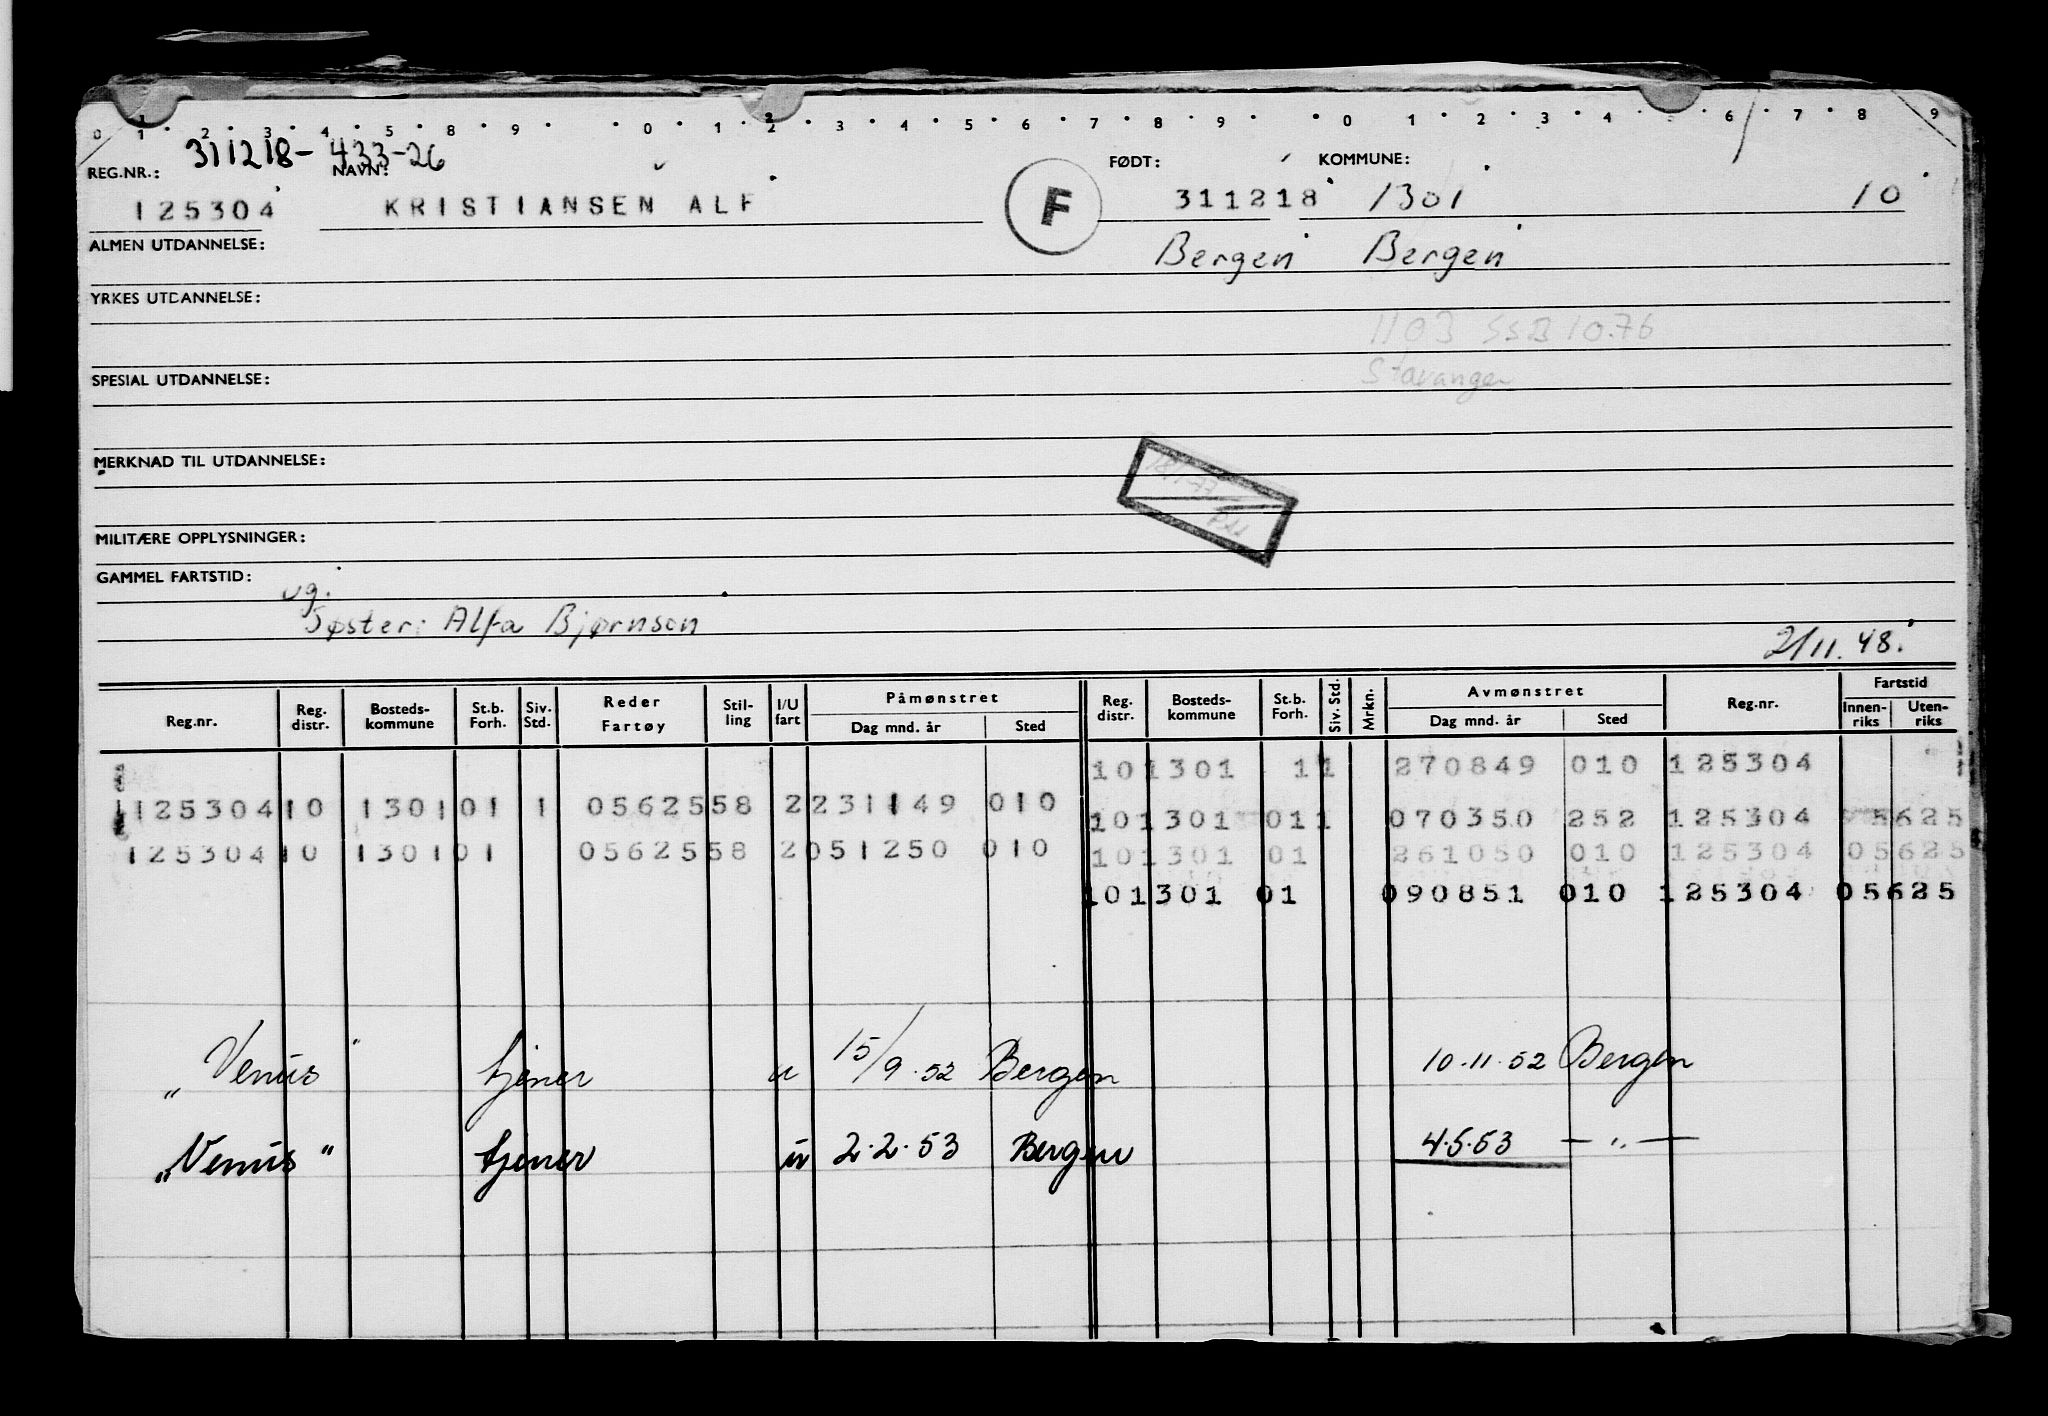 0 1 2 3 4 5 8 9 0 1 2 3 4 5 6 7 8 9 0 1 2 3 4 6 7 8 9
311218-433-26
REG.NR.: NAVN: FØDT: KOMMUNE:
125304 KRISTIANSEN ALF F 311218 1301 10
ALMEN UTDANNELSE: Bergen Bergen
YRKES UTDANNELSE:
1103 SSB 10.76
Stavanger
SPESIAL UTDANNELSE:
MERKNAD TIL UTDANNELSE:
MILITÆRE OPPLYSNINGER:
GAMMEL FARTSTID:
ug.
Søster: Alfa Bjørnson
2/11.48.
Reg.nr. Reg. distr. Bosteds-kommune St.b. Forh. Siv. Std. Reder Fartøy Stil-ling I/U fart Påmønstret Dag mnd. år Sted Reg. distr. Bosteds-kommune St.b. Forh. Siv. Std. Mrkn. Avmønstret Dag mnd. år Sted Reg.nr. Fartstid Innen-riks Uten-riks
101301 11 270849 010 125304
125304 10 1301 01 1 05625 58 2 231149 010 101301 011 070350 252 125304 5625
125304 10 1301 01 05625 58 2 051250 010 101301 01 261050 010 125304 05625
101301 01 090851 010 125304 05625
"Venus" tjener u 15/9.52 Bergen 10.11.52 Bergen
"Venus" tjener u 2.2.53 Bergen 4.5.53 — " —